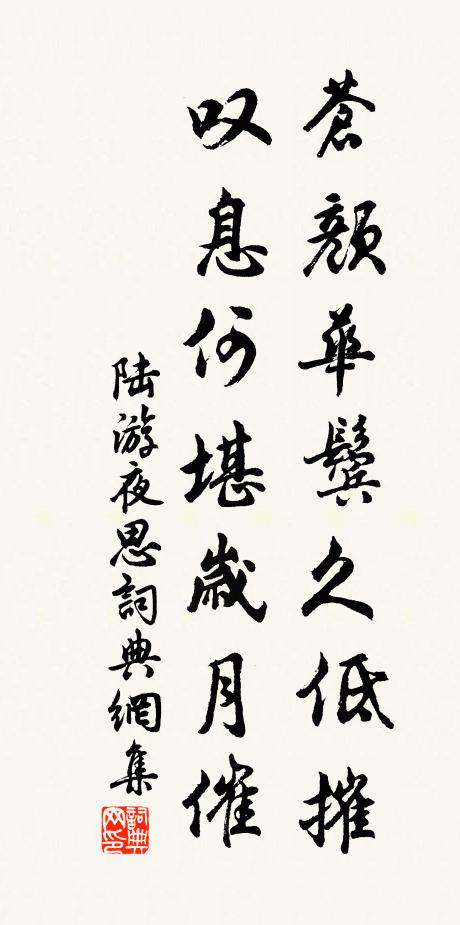 苍颜华鬓久低摧
叹息何堪歲月催
陆游夜思詞典網集
詞典网印